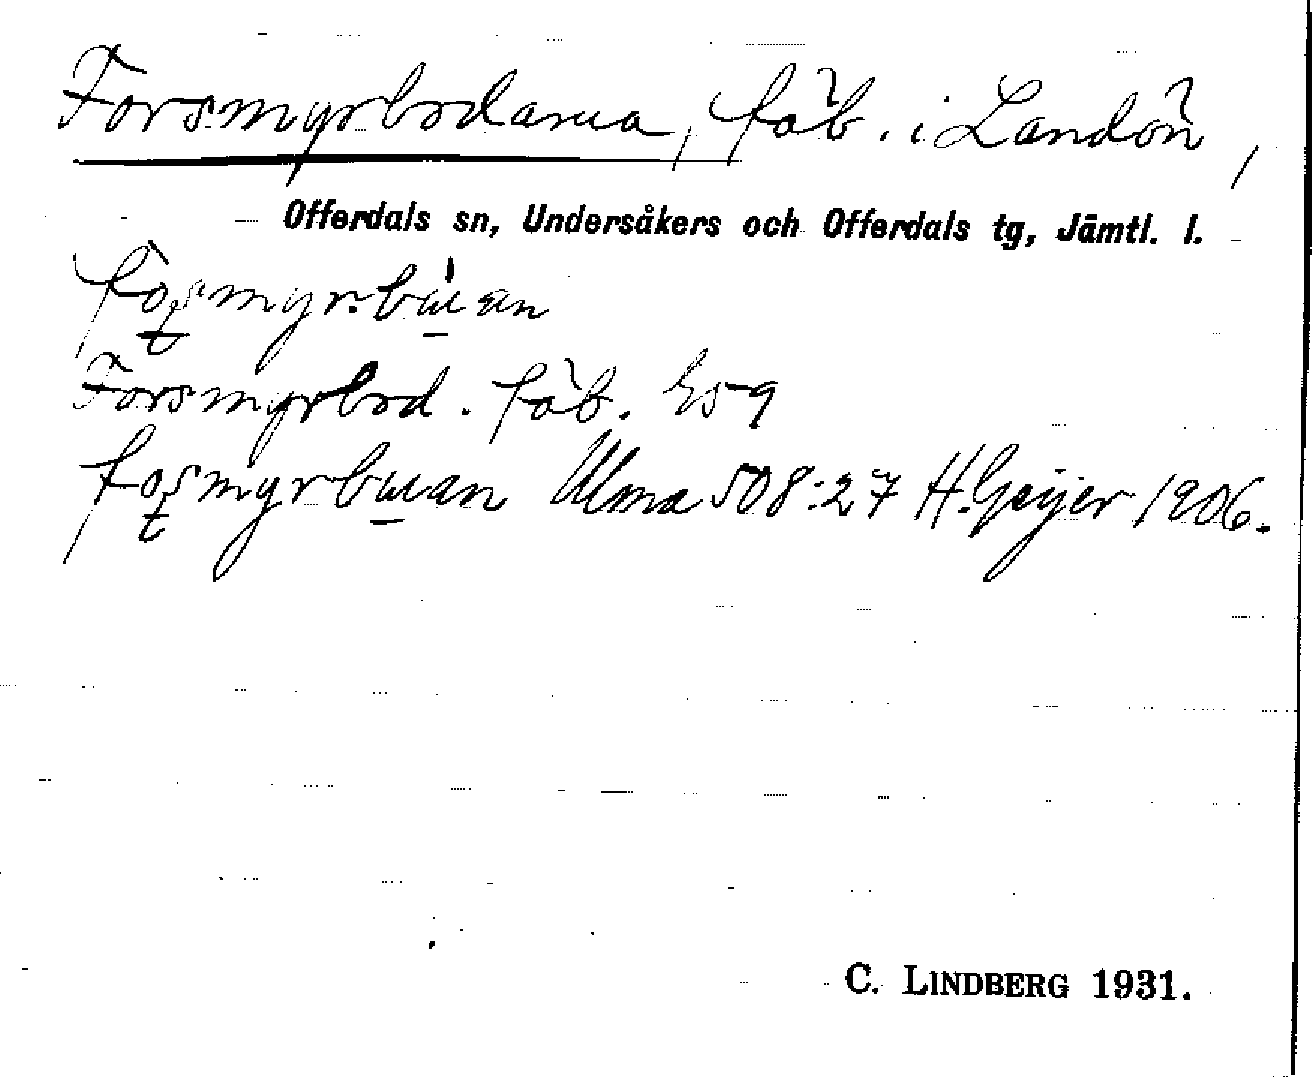 Forsmyrbodarna, fäb. i Landön,
Offerdals sn, Undersåkers och Offerdals tg, Jämtl. l.
Forsmyrbod. fäb. Es 9
Ulma 508:27 H. Geijer 1906.
C. LINDBERG 1931.